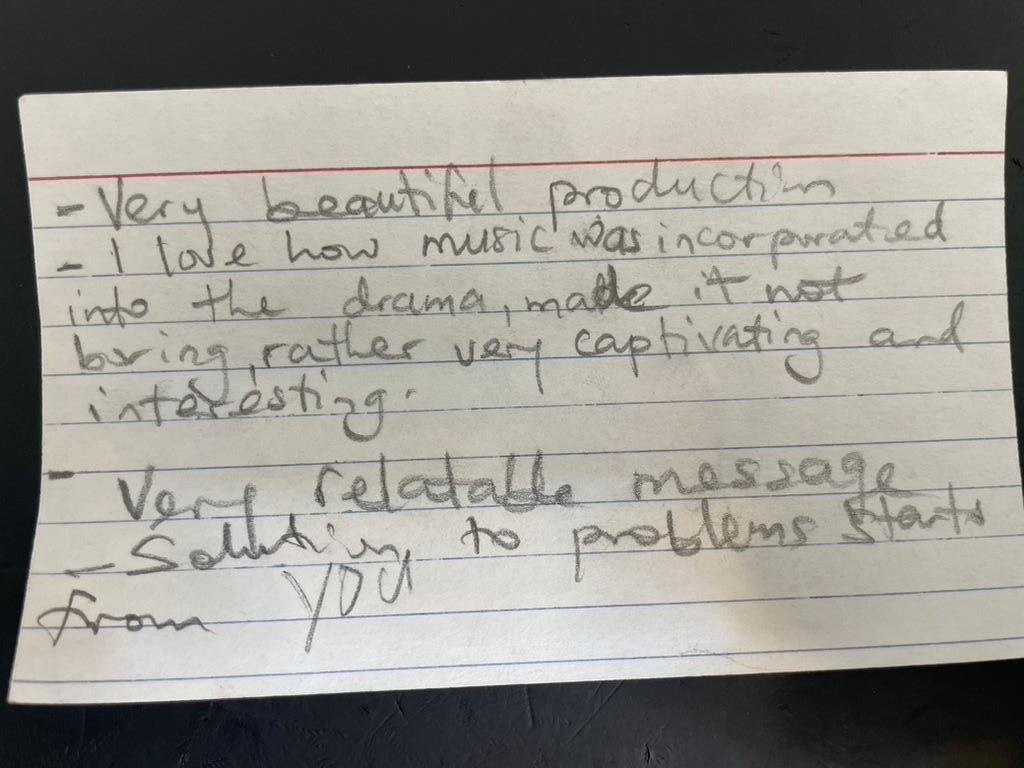 - Very beautiful production
- I love how music was incorporated
into the drama, made it not
boring, rather very captivating and
interesting.
- Very relatable message
- Solution to problems starts
from YOU